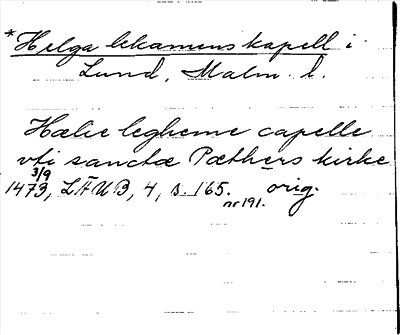 *Helga lekamens kapell i
Lund, Malm. l.
Hælie legheme capelle
vti sanctæ Pæthers kirke
3/9
1473, LÄUB, 4, s. 165. orig.
nr 191.